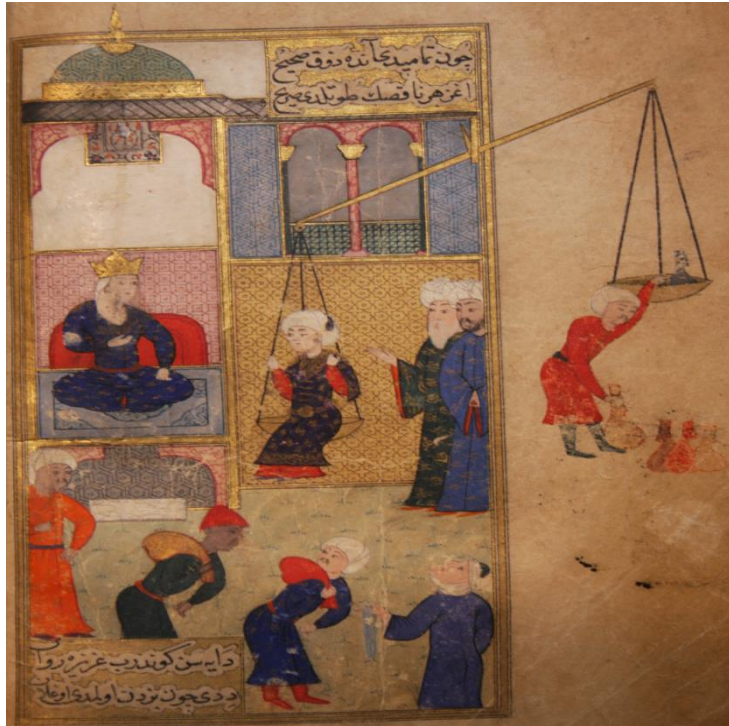 چون تمامیدی آنده ذوق صحیح
اغز هر ناقصك طوتلدی صریح
دایه سن کوندرب عزیزه روان
ددی چون بزدن اولدی اوغلان